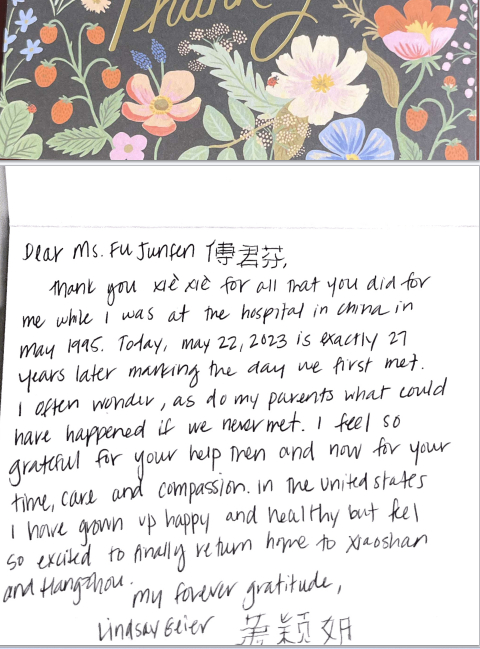 Thank y
Dear Ms. Fu Junfen 傅君芬,
Thank you xiè xiè for all that you did for
me while I was at the hospital in China in
May 1995. Today, May 22, 2023 is exactly 27
years later marking the day we first met.
I often wonder, as do my parents what could
have happened if we never met. I feel so
grateful for your help then and now for your
time, care and compassion. In the United States
I have grown up happy and healthy but feel
so excited to finally return home to Xiaoshan
and Hangzhou.
My forever gratitude,
Lindsay Geier 萧颖妍